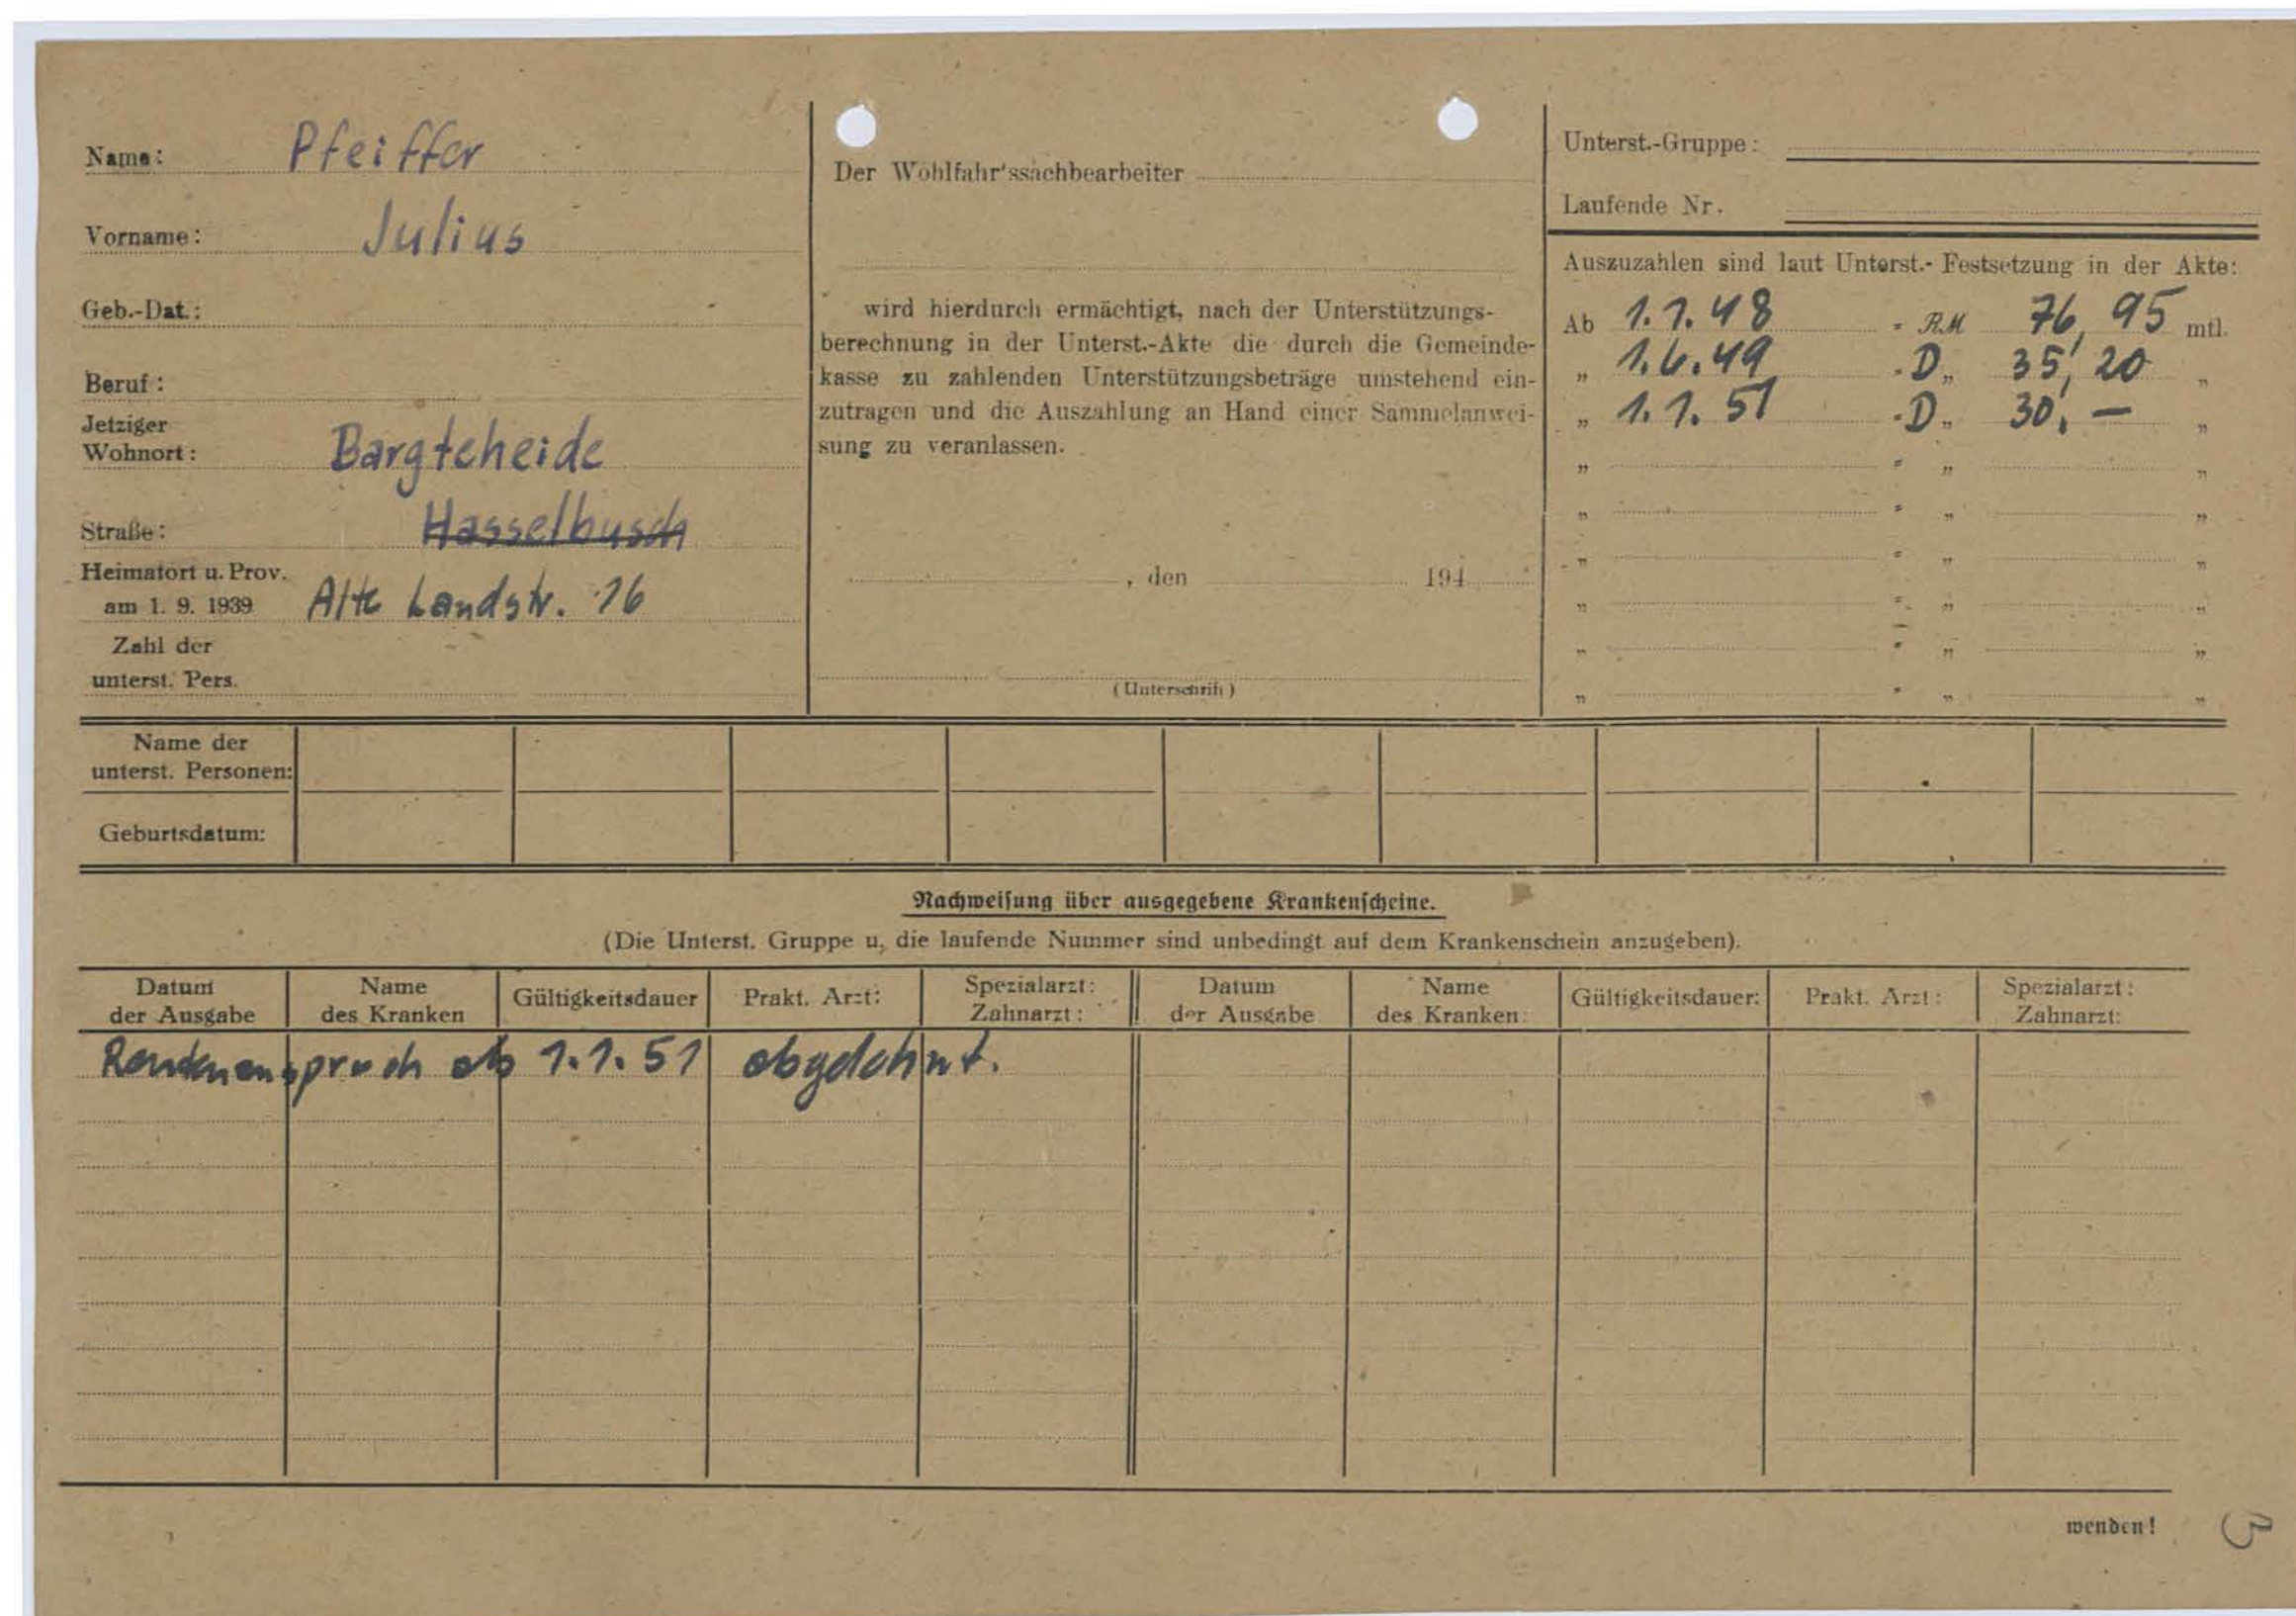 Name: Pfeiffer
Vorname: Julius
Geb.-Dat.:
Beruf:
Jetziger
Wohnort: Bargteheide
Straße: Hasselbusch
Heimatort u. Prov.
am 1. 9. 1939 Alte Landstr. 16
Zahl der
unterst. Pers.
Der Wohlfahr'ssachbearbeiter
wird hierdurch ermächtigt, nach der Unterstützungs-
berechnung in der Unterst.-Akte die durch die Gemeinde-
kasse zu zahlenden Unterstützungsbeträge umstehend ein-
zutragen und die Auszahlung an Hand einer Sammelanwei-
sung zu veranlassen.
, den 194
(Unterschrift)
Unterst.-Gruppe:
Laufende Nr.
Auszuzahlen sind laut Unterst.- Festsetzung in der Akte:
Ab 1.1.48 = RM 76,95 mtl.
„ 1.6.49 = D„ 35,20 „
„ 1.1.51 = D„ 30,— „
„ = „ „
„ = „ „
„ = „ „
„ = „ „
„ = „ „
„ = „ „
Name der
unterst. Personen:
Geburtsdatum:
Nachweisung über ausgegebene Krankenscheine.
(Die Unterst. Gruppe u. die laufende Nummer sind unbedingt auf dem Krankenschein anzugeben).
Datum der Ausgabe Name des Kranken Gültigkeitsdauer Prakt. Arzt: Spezialarzt: Zahnarzt: Datum der Ausgabe Name des Kranken: Gültigkeitsdauer: Prakt. Arzt: Spezialarzt: Zahnarzt:
Rentenanspruch ab 1.1.51 abgelehnt.
wenden!
3